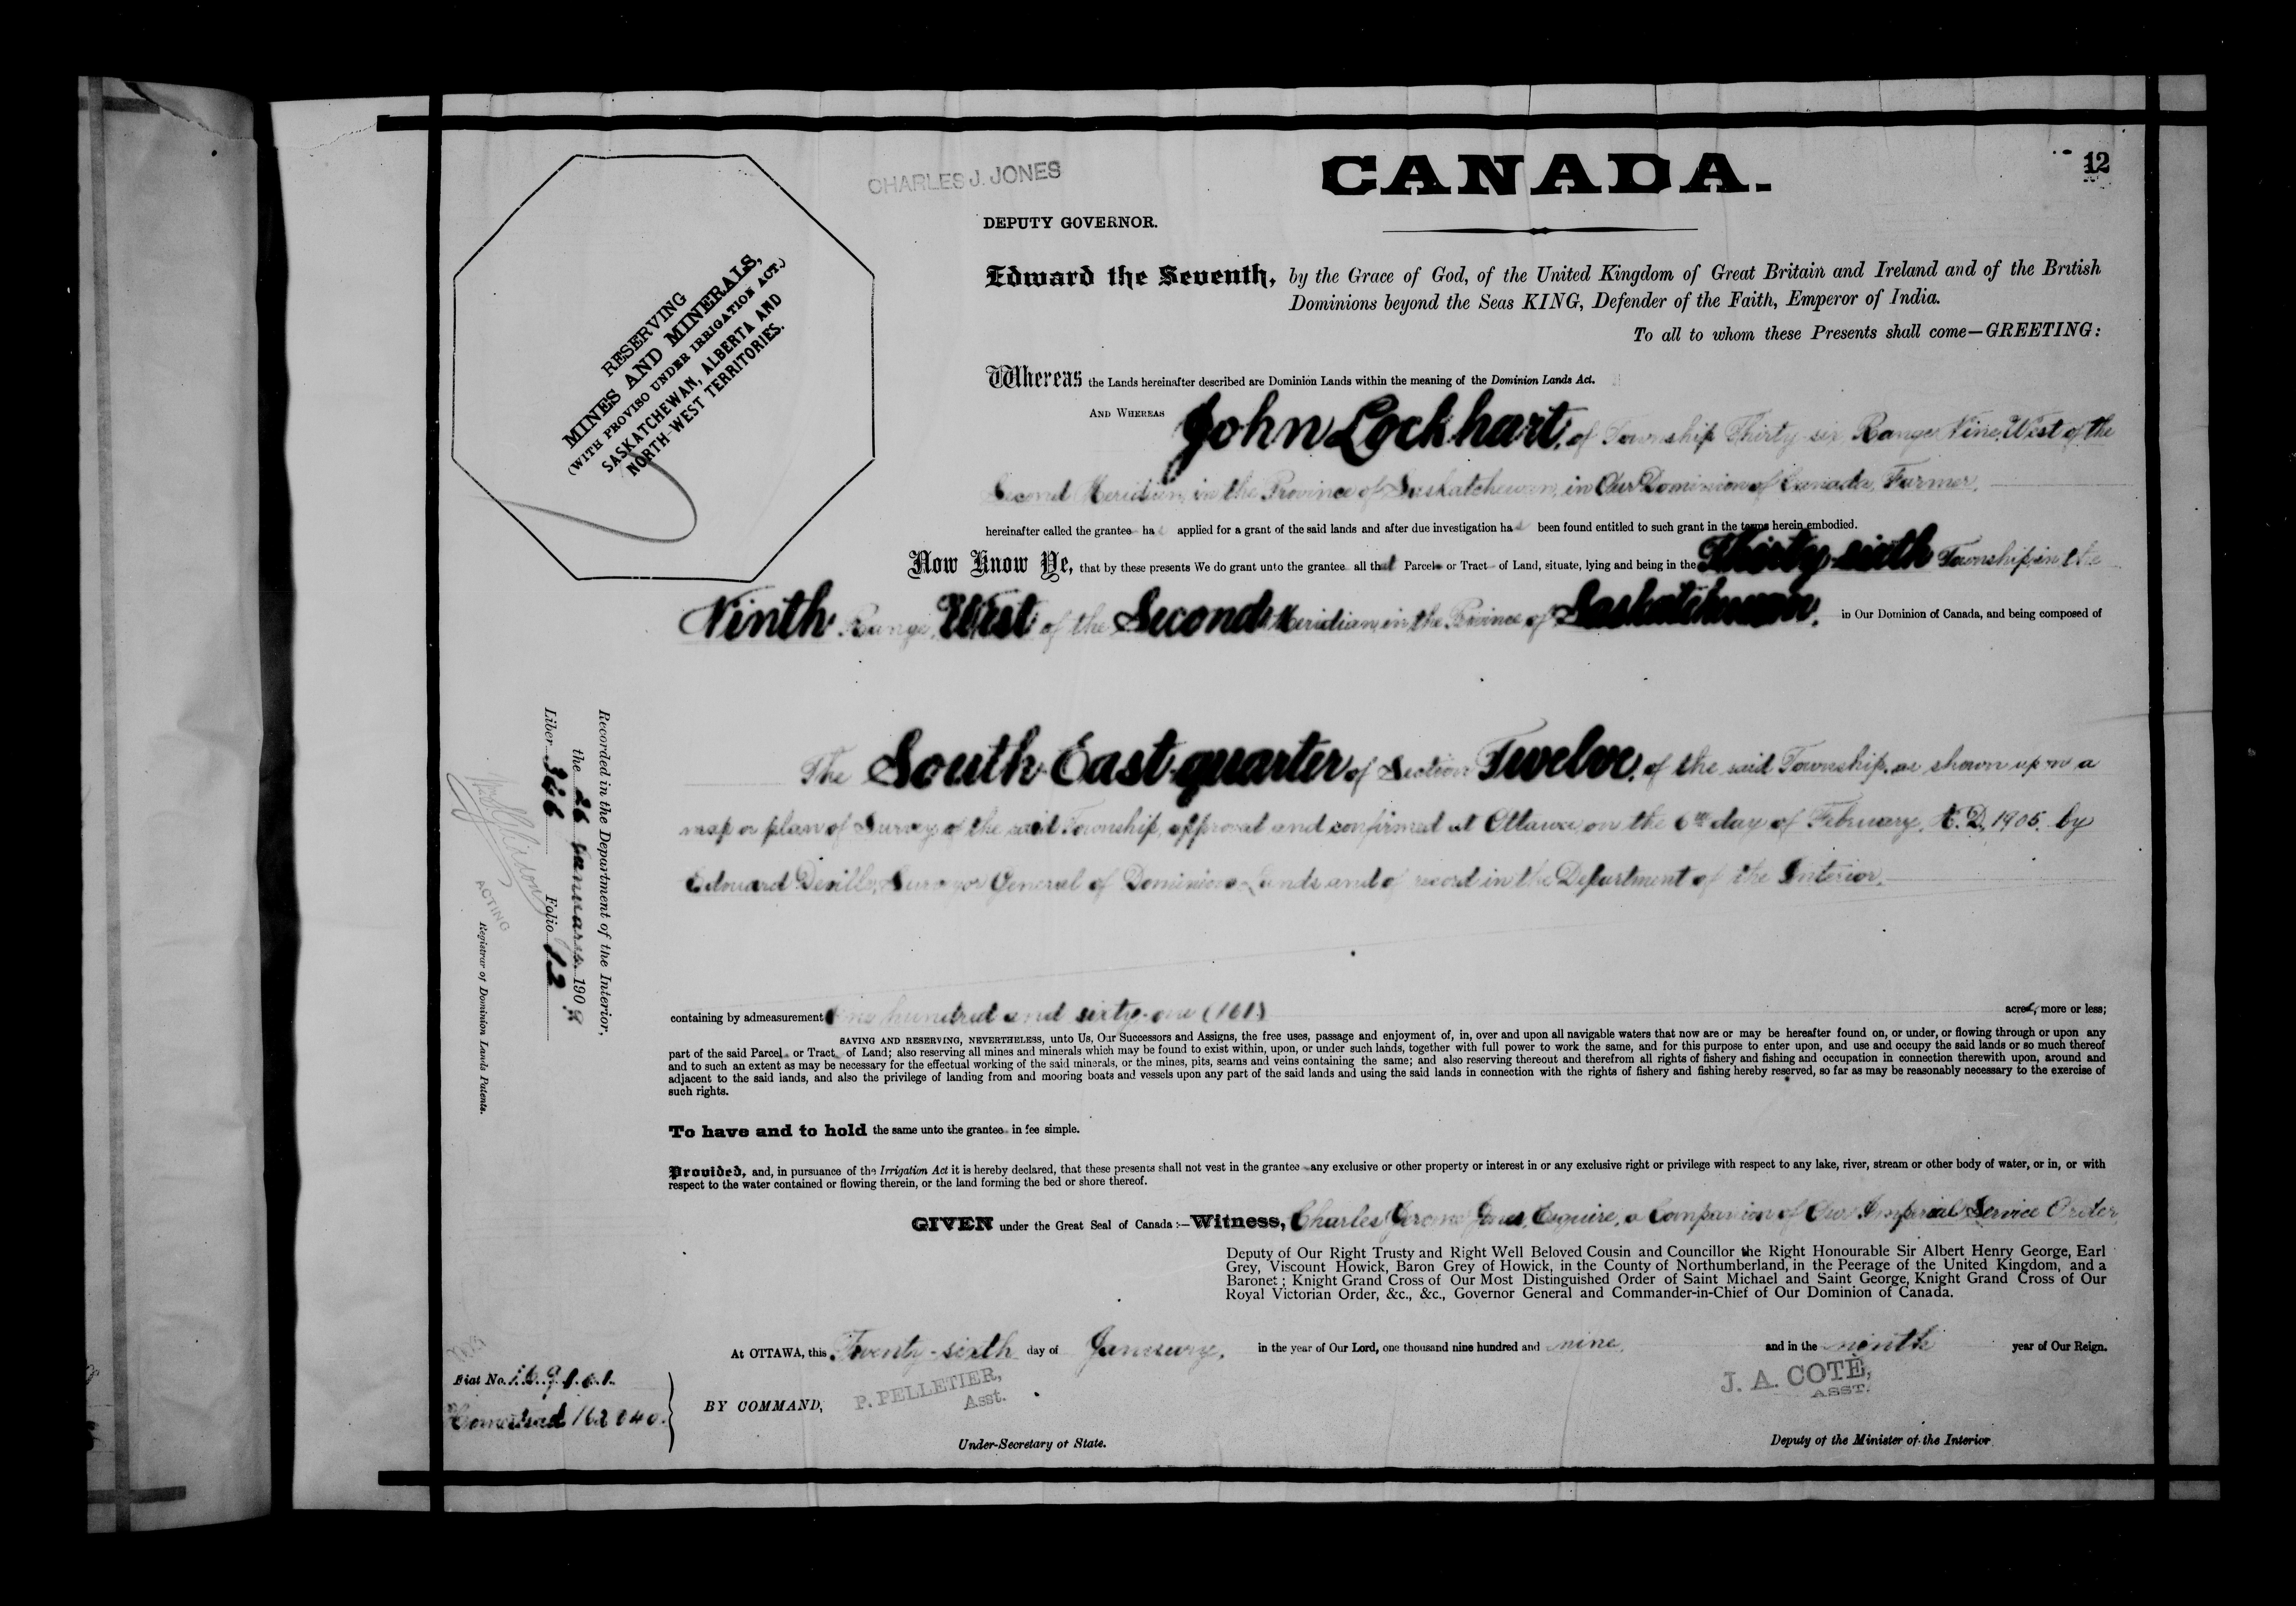 CHARLES J. JONES
CANADA.
12
DEPUTY GOVERNOR.
RESERVING
MINES AND MINERALS,
(WITH PROVISO UNDER IRRIGATION ACT.)
SASKATCHEWAN, ALBERTA AND
NORTH-WEST TERRITORIES.
Edward the Seventh, by the Grace of God, of the United Kingdom of Great Britain and Ireland and of the British
Dominions beyond the Seas KING, Defender of the Faith, Emperor of India.
To all to whom these Presents shall come—GREETING:
Whereas the Lands hereinafter described are Dominion Lands within the meaning of the Dominion Lands Act.
AND WHEREAS John Lockhart, of Township Thirty-six, Range Nine, West of the
Second Meridian, in the Province of Saskatchewan, in Our Dominion of Canada, Farmer,
hereinafter called the grantee has applied for a grant of the said lands and after due investigation has been found entitled to such grant in the terms herein embodied.
Now Know Ye, that by these presents We do grant unto the grantee all that Parcel or Tract of Land, situate, lying and being in the Thirty-sixth Township, in the
Ninth Range, West of the Second Meridian, in the Province of Saskatchewan, in Our Dominion of Canada, and being composed of
The South East quarter of Section Twelve, of the said Township, as shown upon a
map or plan of Survey of the said Township, approved and confirmed at Ottawa, on the 6th day of February, A.D. 1905, by
Edouard Deville, Surveyor General of Dominion Lands and of record in the Department of the Interior.
containing by admeasurement One hundred and sixty-one (161) acres, more or less;
SAVING AND RESERVING, NEVERTHELESS, unto Us, Our Successors and Assigns, the free uses, passage and enjoyment of, in, over and upon all navigable waters that now are or may be hereafter found on, or under, or flowing through or upon any
part of the said Parcel or Tract of Land; also reserving all mines and minerals which may be found to exist within, upon, or under such lands, together with full power to work the same, and for this purpose to enter upon, and use and occupy the said lands or so much thereof
and to such an extent as may be necessary for the effectual working of the said minerals, or the mines, pits, seams and veins containing the same; and also reserving thereout and therefrom all rights of fishery and fishing and occupation in connection therewith upon, around and
adjacent to the said lands, and also the privilege of landing from and mooring boats and vessels upon any part of the said lands and using the said lands in connection with the rights of fishery and fishing hereby reserved, so far as may be reasonably necessary to the exercise of
such rights.
To have and to hold the same unto the grantee in fee simple.
Provided, and, in pursuance of the Irrigation Act it is hereby declared, that these presents shall not vest in the grantee any exclusive or other property or interest in or any exclusive right or privilege with respect to any lake, river, stream or other body of water, or in, or with
respect to the water contained or flowing therein, or the land forming the bed or shore thereof.
GIVEN under the Great Seal of Canada:—Witness, Charles Jerome Jones, Esquire, a Companion of Our Imperial Service Order
Deputy of Our Right Trusty and Right Well Beloved Cousin and Councillor the Right Honourable Sir Albert Henry George, Earl
Grey, Viscount Howick, Baron Grey of Howick, in the County of Northumberland, in the Peerage of the United Kingdom, and a
Baronet; Knight Grand Cross of Our Most Distinguished Order of Saint Michael and Saint George, Knight Grand Cross of Our
Royal Victorian Order, &c., &c., Governor General and Commander-in-Chief of Our Dominion of Canada.
At OTTAWA, this Twenty-sixth day of January, in the year of Our Lord, one thousand nine hundred and nine, and in the ninth year of Our Reign.
BY COMMAND,
P. PELLETIER,
Asst.
Under-Secretary of State.
J. A. COTÉ,
ASST.
Deputy of the Minister of the Interior
Recorded in the Department of the Interior,
the 26 January 1909
Liber 346 Folio 12
ACTING
Registrar of Dominion Lands Patents.
Fiat No. 169101
Homestead 162040